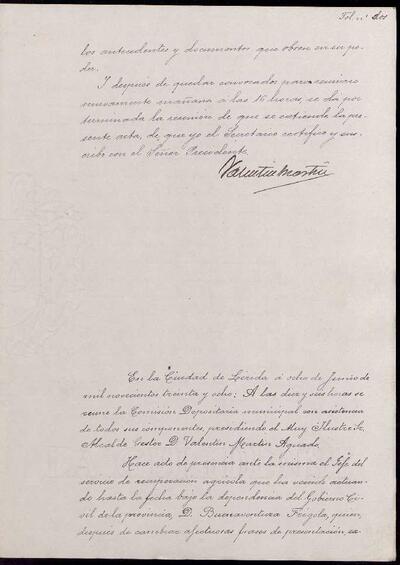 Fol. nº dos
los antecedentes y documentos que obren en su po-
der.
Y después de quedar convocados para reunirse
nuevamente mañana a las 16 horas, se dá por
terminada la reunión de que se extiende la pre-
sente acta, de que yo el Secretario certifico y sus-
cribo con el Señor Presidente.
Valentin Martin
En la Ciudad de Lérida á ocho de Junio de
mil novecientos treinta y ocho: A las diez y seis horas se
reune la Comisión Depositaria municipal con asistencia
de todos sus componentes, presidiendo el Muy Ilustre Sr.
Alcalde Gestor D. Valentín Martín Aguado.
Hace acto de presencia ante la misma el Jefe del
servicio de recuperación agrícola que ha venido actuan-
do hasta la fecha bajo la dependencia del Gobierno Ci-
vil de la provincia, D. Buenaventura Frigola, quien,
después de cambiar afectuosas frases de presentación, ex-